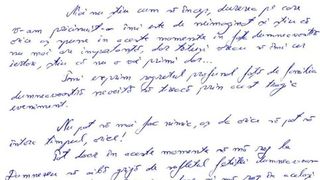 Nu mai știu cum să încep, durerea pe care
v-am pricinuit-o îmi este de neimaginat și știu că
orice aș spune în aceste momente în fața dumneavoastră
nu mai are importanță, dar totuși vreau să îmi cer
iertare, știu că nu o voi primi dar...
Îmi exprim regretul profund față de familia
dumneavoastră nevoită să treacă prin acest tragic
eveniment.
Nu pot să mai fac nimic, aș da orice să pot să
întorc timpul, orice!
Tot doar în aceste momente să mă rog la
Dumnezeu să aibă grijă de sufletul fetiței dumneavoastră
să mă rog în același